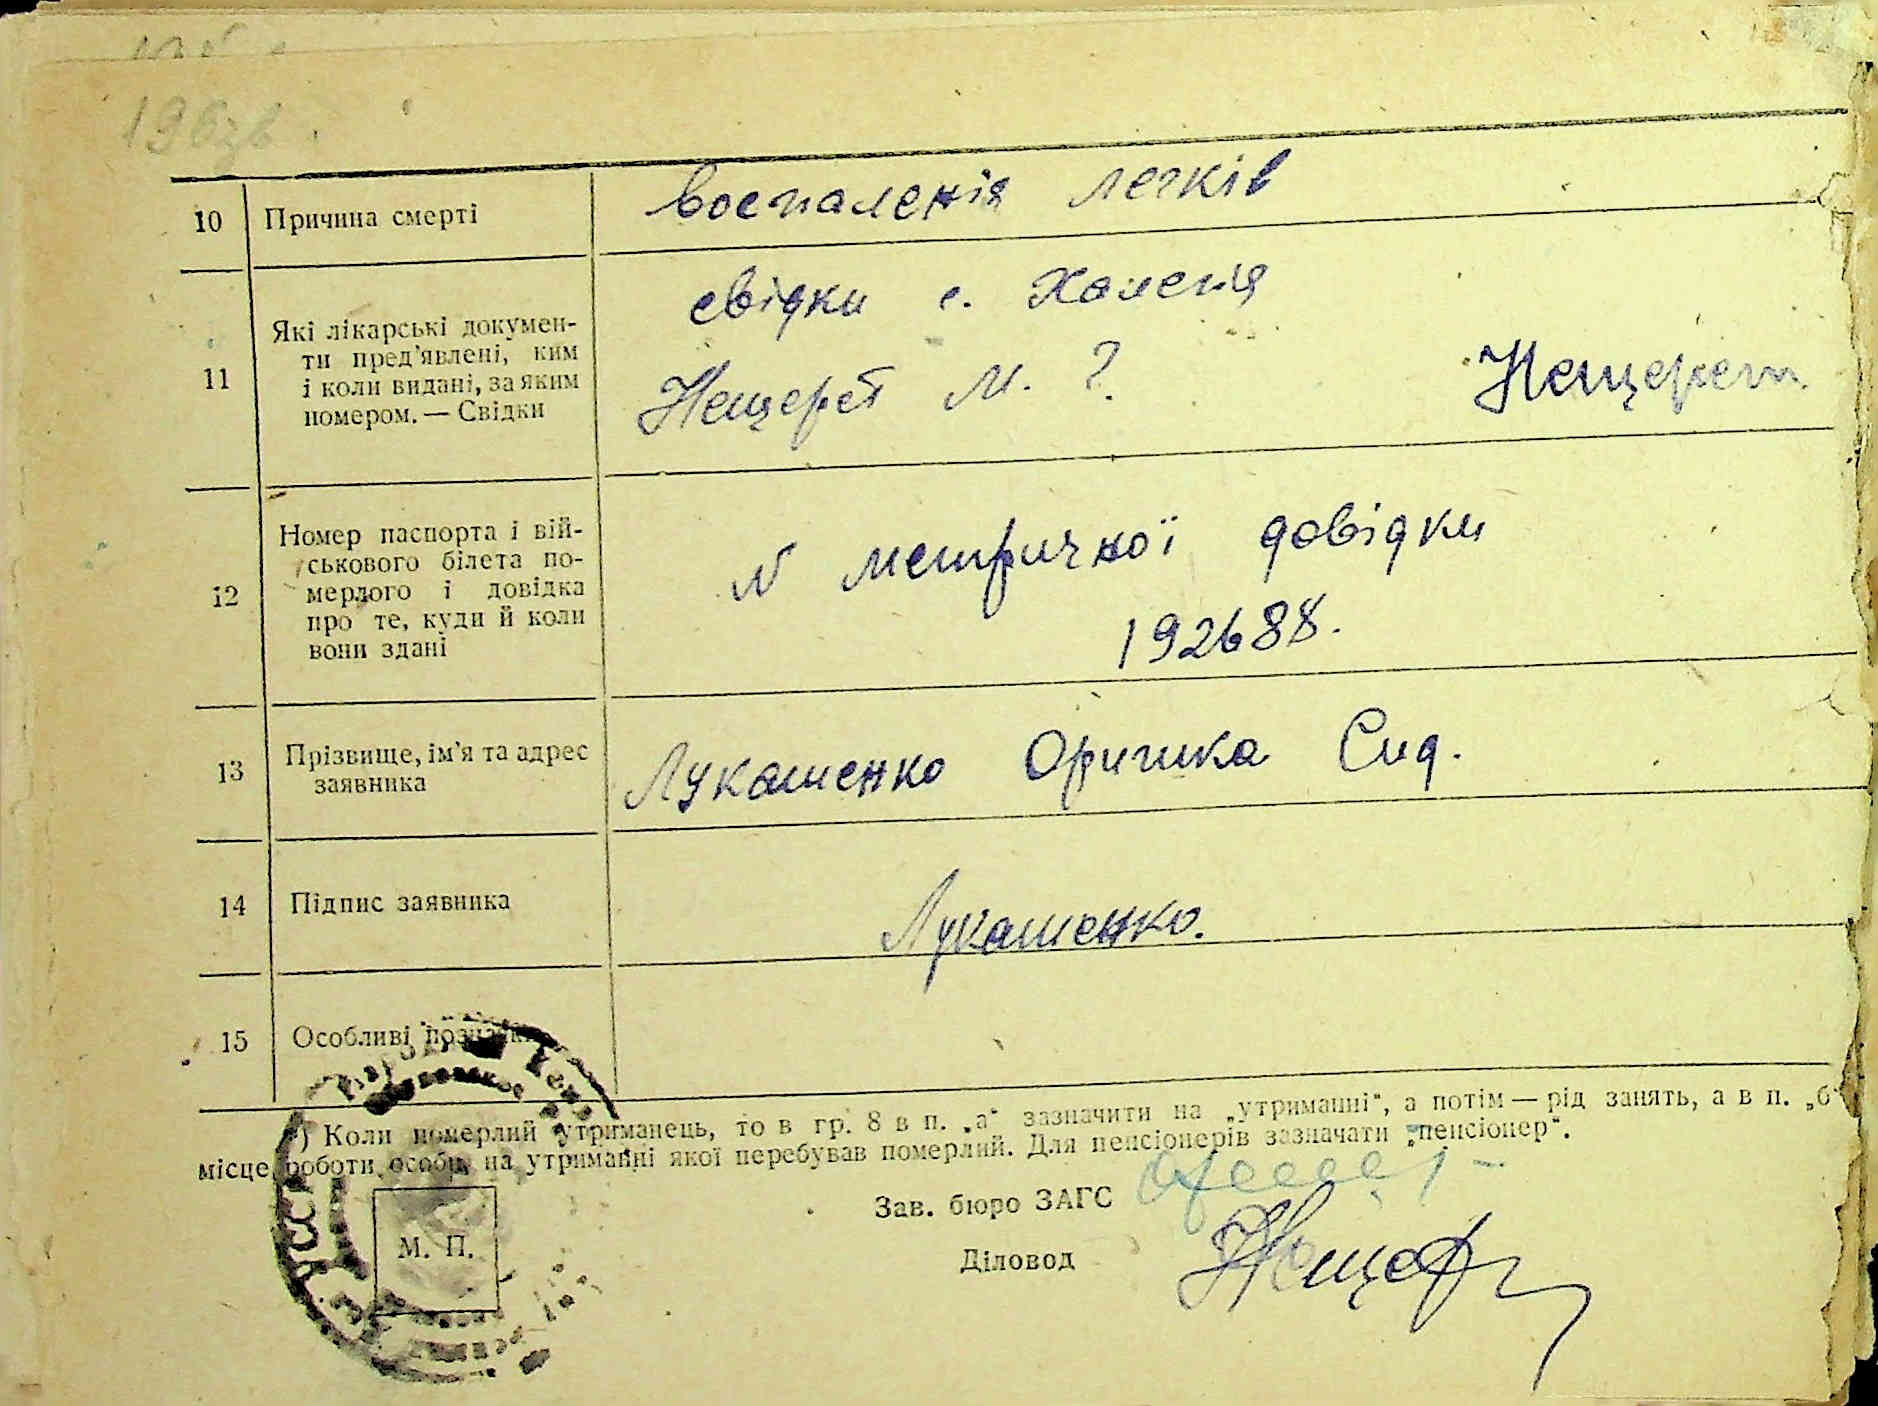 196зв
10 Причина смерті воспаленія легків
11 Які лікарські докумен-
ти пред'явлені, ким
і коли видані, за яким
номером. — Свідки
свідки с. Халепія
Нещерет М. ? Нещерет
12 Номер паспорта і вій-
ськового білета по-
мерлого і довідка
про те, куди й коли
вони здані
N метричної довідки
192688.
13 Прізвище, ім'я та адрес
заявника
Лукашенко Оришка Сид.
14 Підпис заявника Лукашенко.
15 Особливі позначки
) Коли померлий утриманець, то в гр. 8 в п. „а“ зазначити на „утриманні“, а потім — рід занять, а в п. „б
місце роботи особи, на утриманні якої перебував померлий. Для пенсіонерів зазначати „пенсіонер“.
Зав. бюро ЗАГС
Діловод Нещер
М. П.
УССР